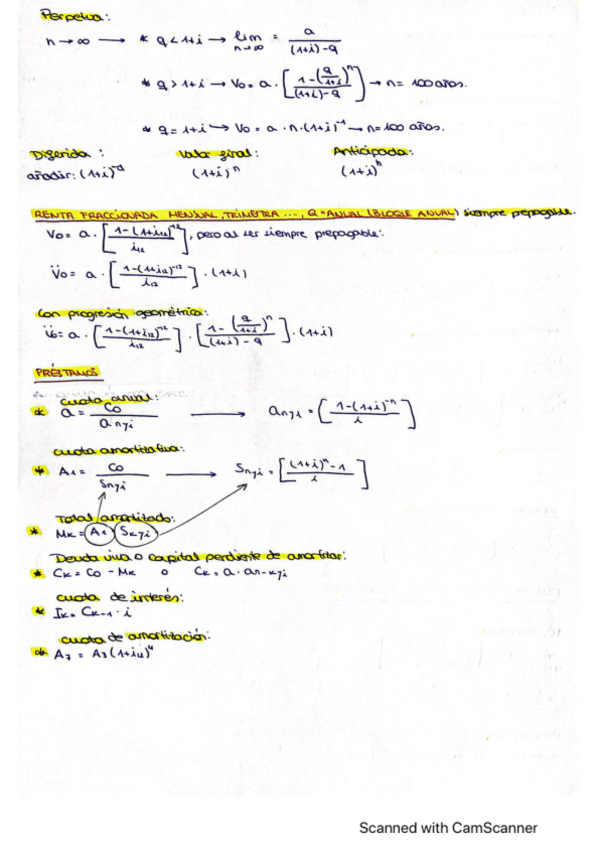 Perpetua:
n → ∞ → * q < 1+i → lim n→∞ = a / (1+i)-q
* q > 1+i → Vo = a · [ 1-(q/1+i)^n / (1+i)-q ] → n = 100 años.
* q = 1+i → Vo = a · n · (1+i)^-1 → n = 100 años.
Diferida: Valor final: Anticipada:
añadir: (1+i)^-d (1+i)^n (1+i)^h
RENTA FRACCIONADA MENSUAL, TRIMESTRA..., Q = ANUAL (BLOQUE ANUAL) siempre prepagable.
Vo = a · [ 1-(1+i12)^-12 / i12 ], pero al ser siempre prepagable:
V̈o = a · [ 1-(1+i12)^-12 / i12 ] · (1+i)
Con progresión geométrica:
V̈o = a · [ 1-(1+i12)^-12 / i12 ] · [ 1-(q/1+i)^n / (1+i)-q ] · (1+i)
PRÉSTAMOS
cuota anual:
* a = Co / a n┐i → a n┐i = [ 1-(1+i)^-n / i ]
cuota amortizativa:
* A1 = Co / S n┐i → S n┐i = [ (1+i)^n - 1 / i ]
Total amortizado:
* Mk = A1 · S k┐i
Deuda viva o capital pendiente de amortizar:
* Ck = Co - Mk o Ck = a · a n-k┐i
cuota de interés:
* Ik = Ck-1 · i
cuota de amortización:
* A7 = A3 (1+i12)^4
Scanned with CamScanner